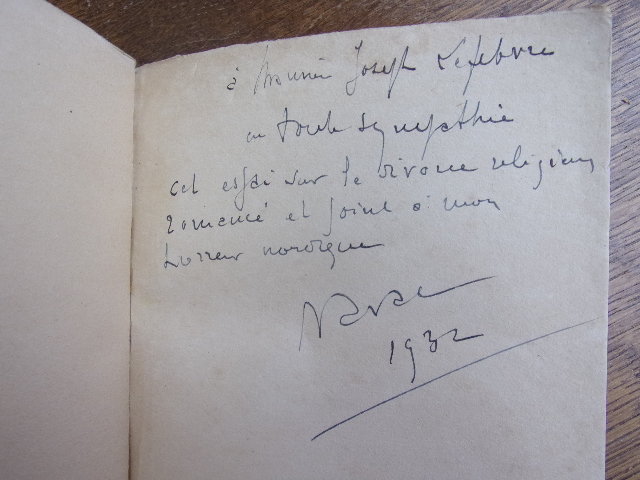 à Monsieur Joseph Lefebvre
en toute sympathie
cet essai sur le divorce religieux
romancé et joint à mon
1932